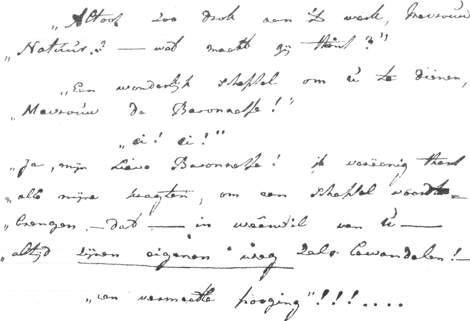 „Altoos zoo druk aan 't werk, Mevrouw
„Natuur? — wat maakt gij thans?"
„Een wonderlijk schepsel om U te dienen,
„Mevrouw de Baronnesse!"
„ei! ei!"
„Ja, mijn lieve Baronnesse! ik vereenig thans
„alle mijne kragten, om een schepsel voordte-
„brengen — dat — in weêrwil van U —
„altijd zijnen eigenen weg zal bewandelen! —
„een vermeetle pooging"!!!....